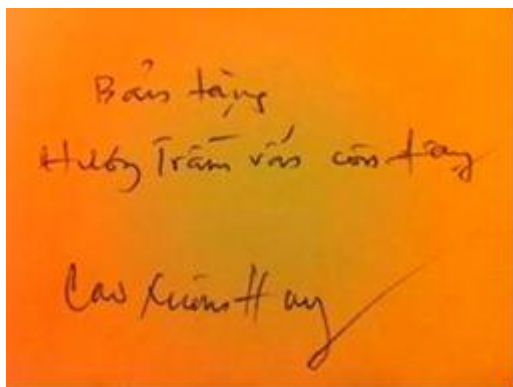 Bản tặng
Hương Trầm vẫn còn đây
Cao Xuân Huy